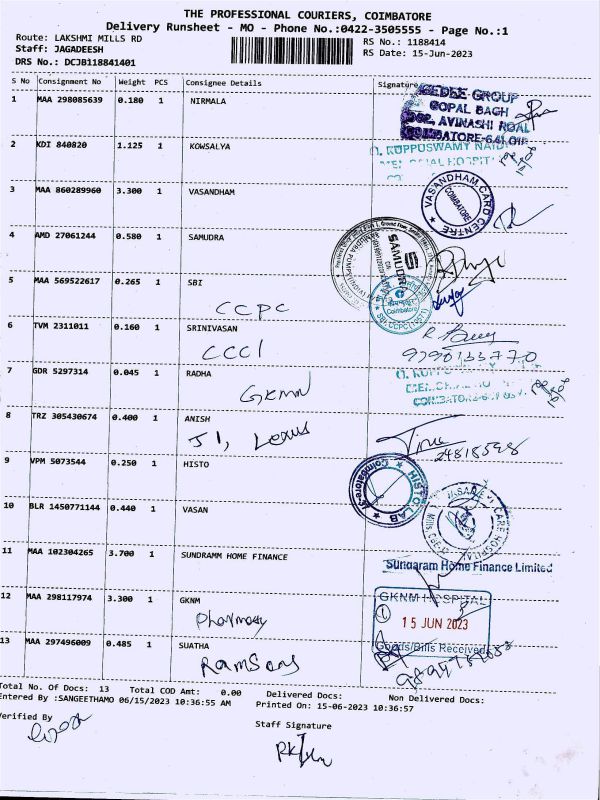 THE PROFESSIONAL COURIERS, COIMBATORE
Delivery Runsheet - MO - Phone No.:0422-3505555 - Page No.:1
Route: LAKSHMI MILLS RD
Staff: JAGADEESH
DRS No.: DCJB118841401
RS No.: 1188414
RS Date: 15-Jun-2023
S No Consignment No Weight PCS Consignee Details Signature
1 MAA 298085639 0.180 1 NIRMALA
GEDEE GROUP
GOPAL BAGH
AVINASHI ROAD
COIMBATORE-641 018
2 KDI 840820 1.125 1 KOWSALYA
KUPPUSWAMY NAIDU
3 MAA 860289960 3.300 1 VASANDHAM
VASANDHAM CARD CENTRE
COIMBATORE
4 AMD 27061244 0.580 1 SAMUDRA
SAMUDRA
5 MAA 569522617 0.265 1 SBI
CCPC
Coimbatore
6 TVM 2311011 0.160 1 SRINIVASAN
CCCI
7 GDR 5297314 0.045 1 RADHA
GKMN
8 TRZ 305430674 0.400 1 ANISH
9 VPM 5073544 0.250 1 HISTO
HISTO LAB
Coimbatore
10 BLR 1450771144 0.440 1 VASAN
11 MAA 102304265 3.700 1 SUNDRAMM HOME FINANCE
Sundaram Home Finance Limited
12 MAA 298117974 3.300 1 GKNM
Pharmacy
GKNM HOSPITAL
15 JUN 2023
Goods/Bills Received
13 MAA 297496009 0.485 1 SUATHA
Total No. Of Docs: 13 Total COD Amt: 0.00 Delivered Docs: Non Delivered Docs:
Entered By :SANGEETHAMO 06/15/2023 10:36:55 AM Printed On: 15-06-2023 10:36:57
Verified By
Staff Signature